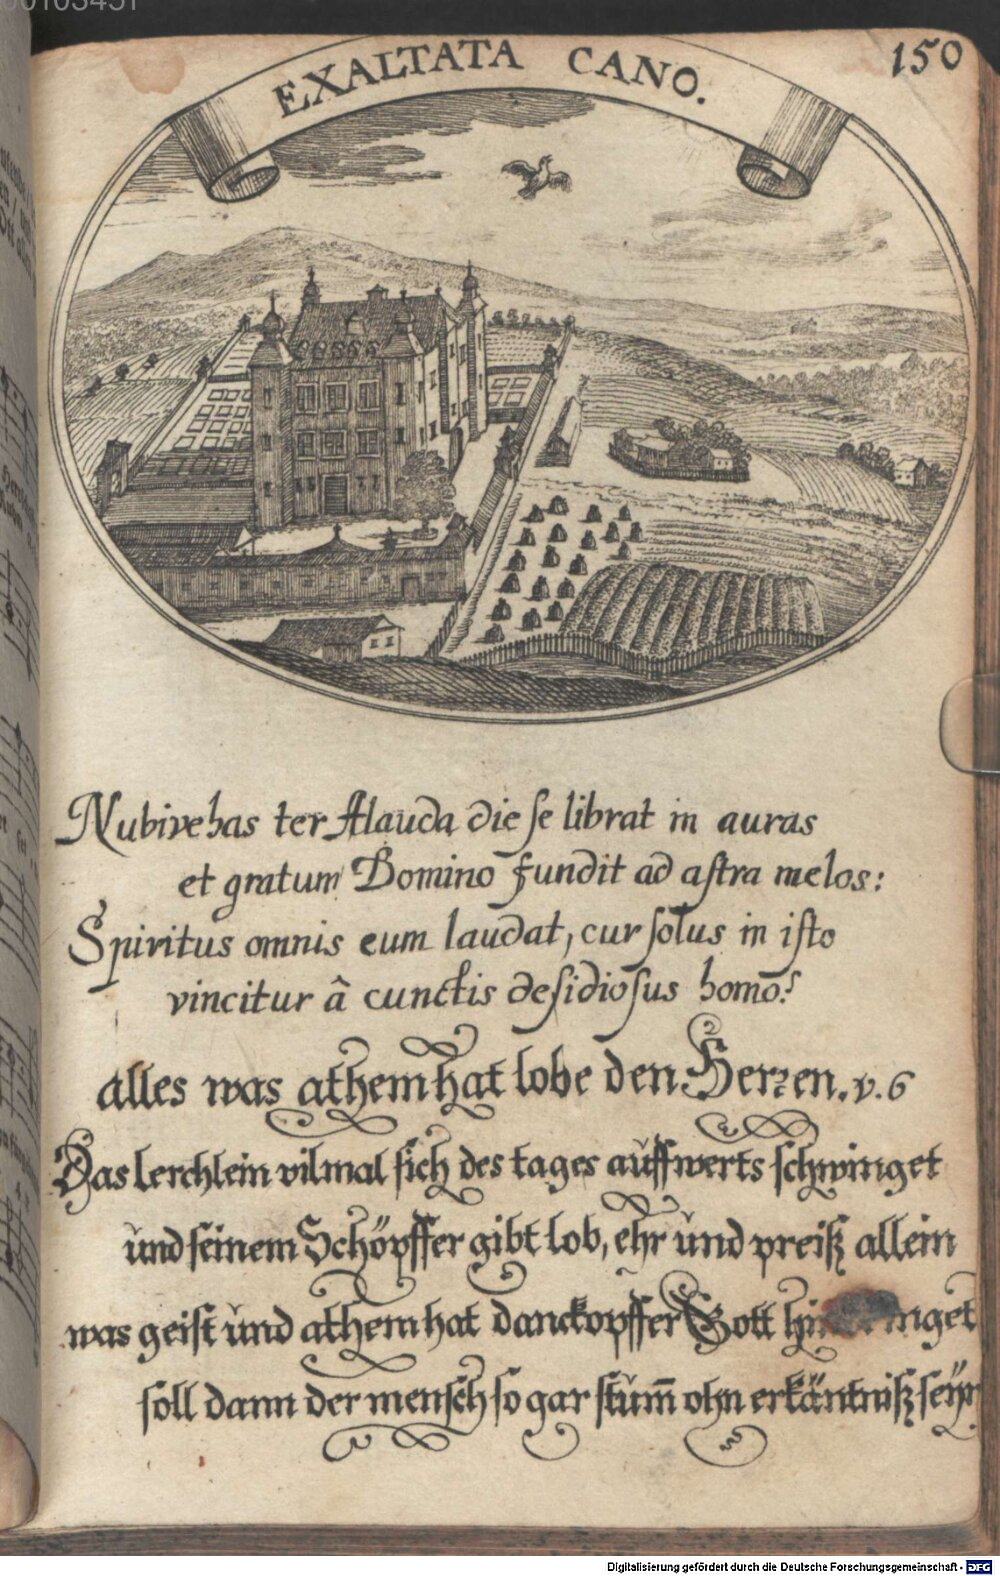 150
EXALTATA CANO.
Nubivehas ter Alauda die se librat in auras
et gratum Domino fundit ad astra melos:
Spiritus omnis eum laudat, cur solus in isto
vincitur â cunctis desidiosus homo?
alles was athem hat lobe den Herren. v. 6
Das lerchlein vilmal sich des tages auffwerts schwinget
und seinem Schöpffer gibt lob, ehr und preiß allein
was geist und athem hat danckopffer Gott
soll dann der mensch so gar stum̃ ohn erkäntniß seyn
Digitalisierung gefördert durch die Deutsche Forschungsgemeinschaft - DFG